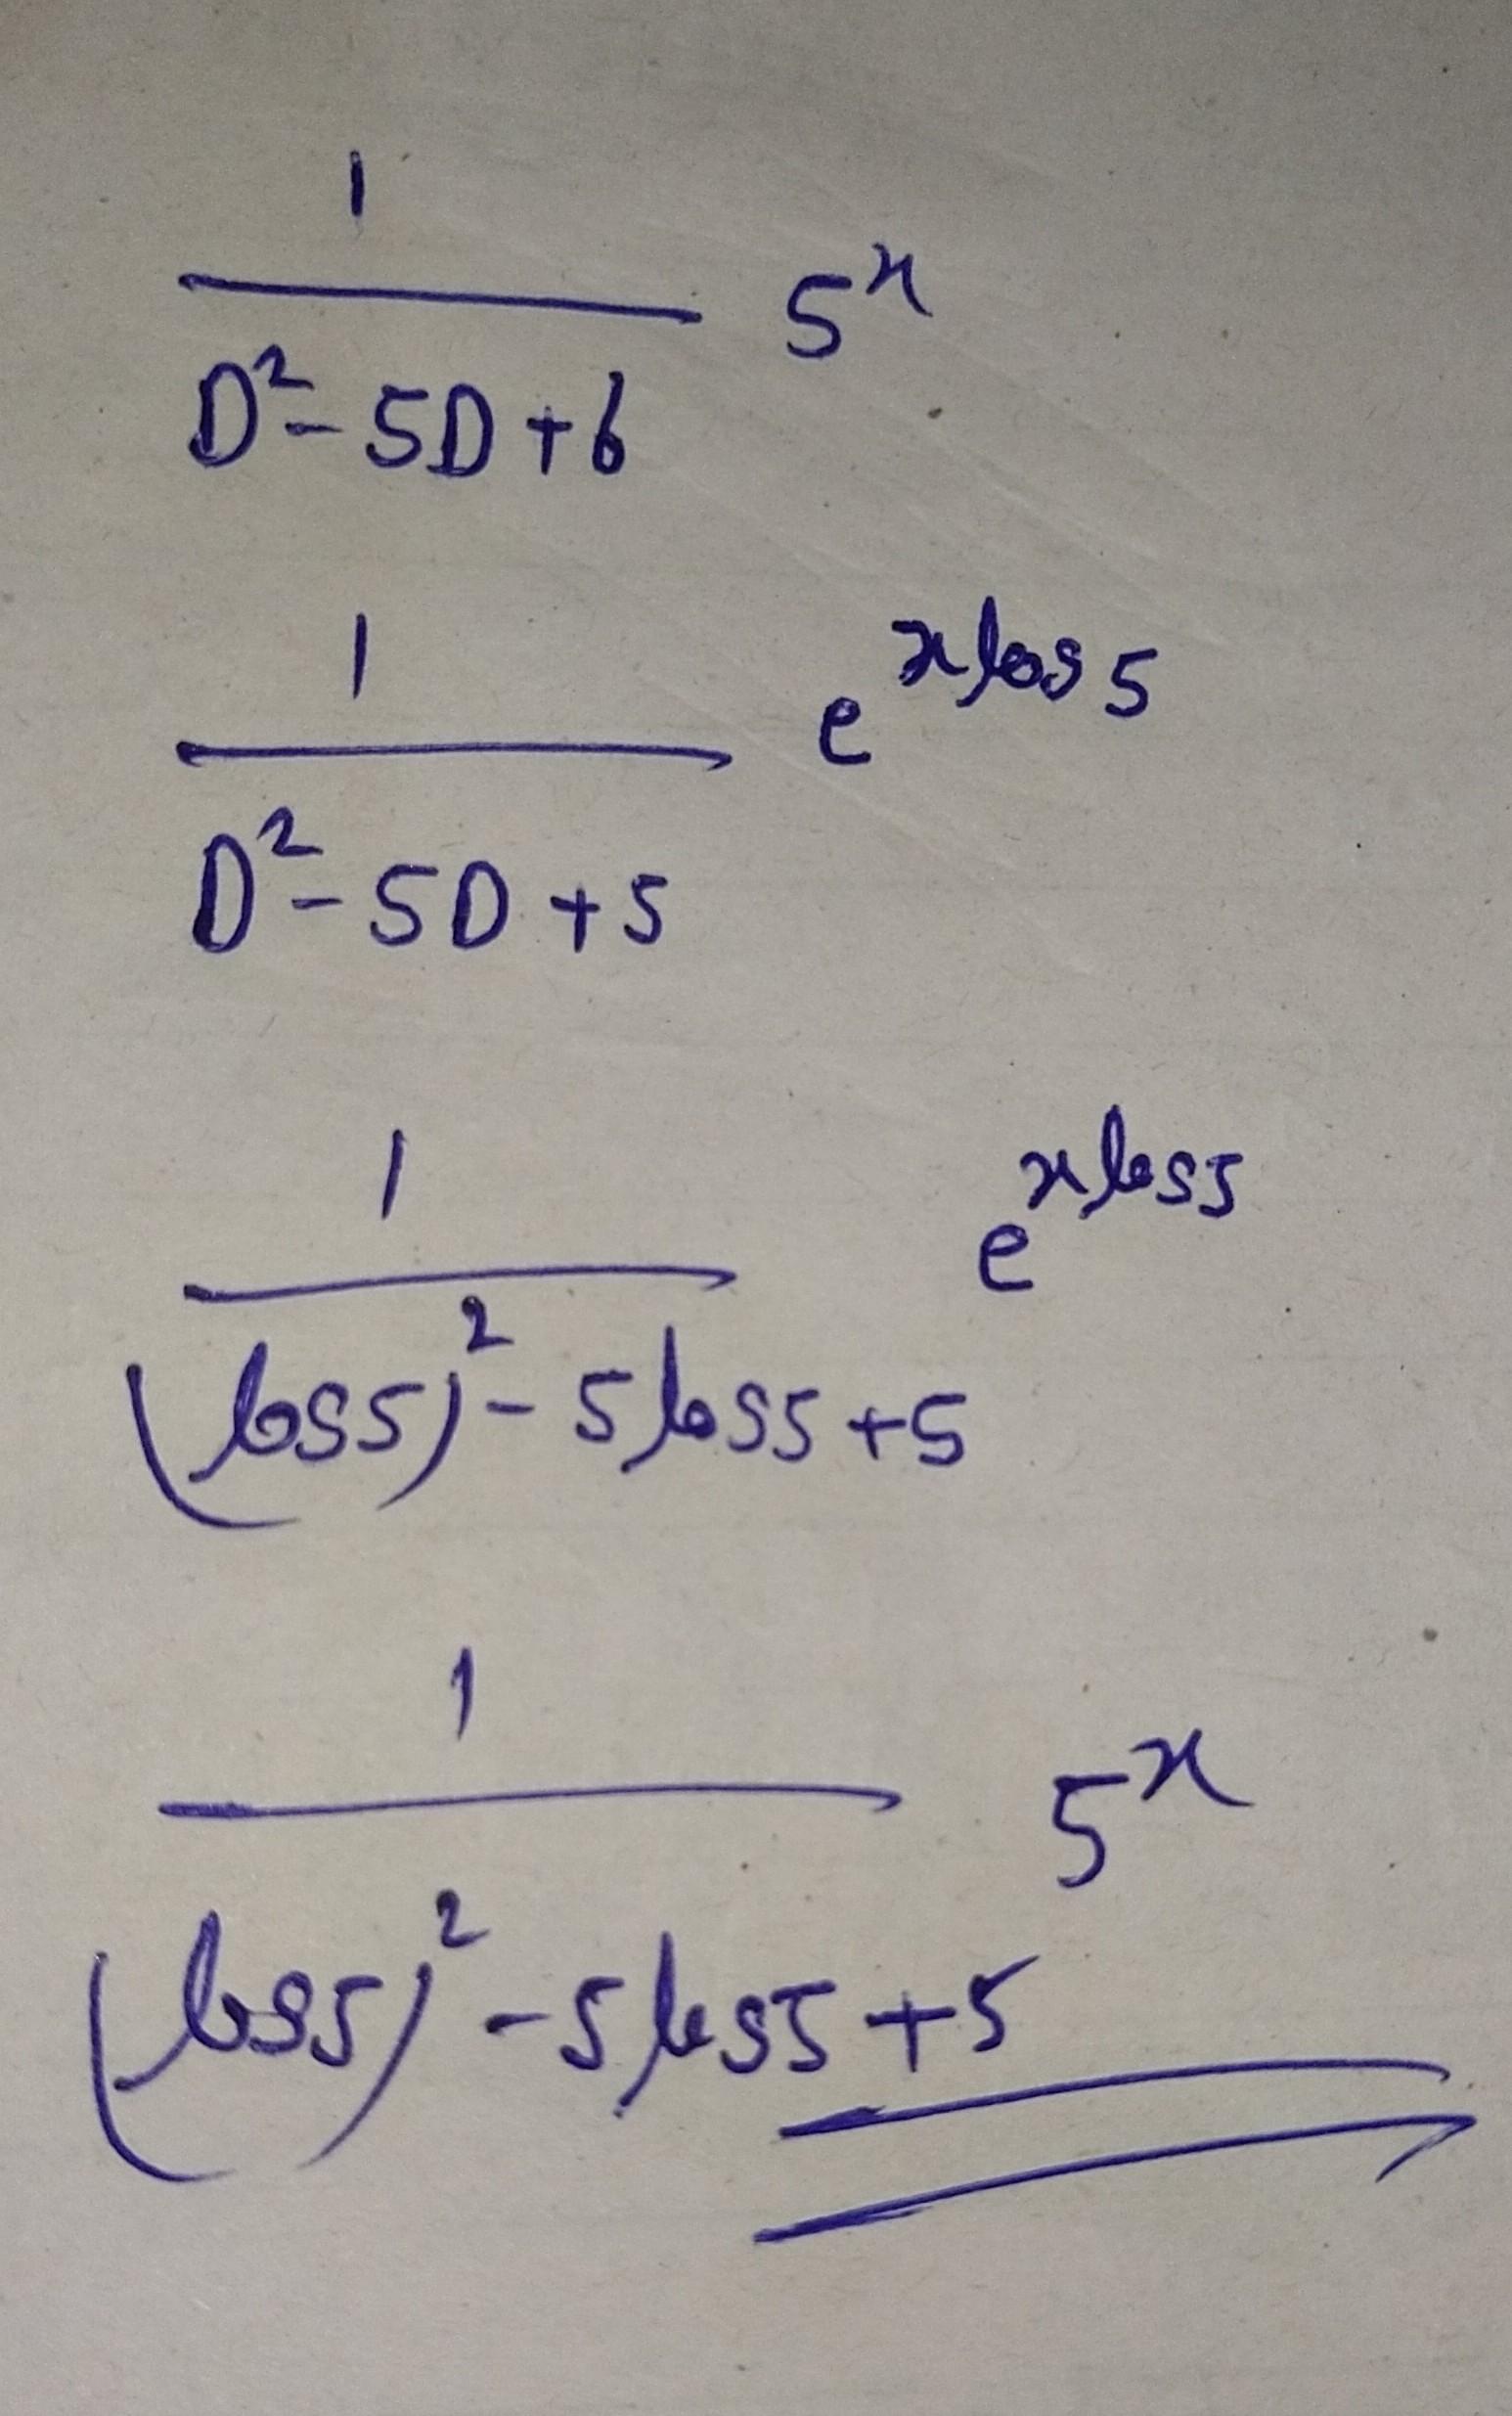 1
5^x
D² - 5D + 6
1
e^x log 5
D² - 5D + 5
1
e^x log 5
(log 5)² - 5 log 5 + 5
1
5^x
(log 5)² - 5 log 5 + 5